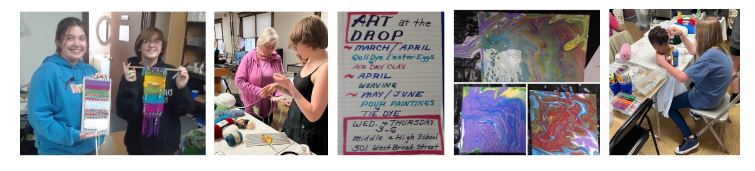 ART at the
DROP
~ MARCH / APRIL
Gall Dye Easter Eggs
AIR DRY CLAY
~ APRIL
WEAVING
~ MAY / JUNE
POUR PAINTINGS
TIE DYE
WED. & THURSDAY
3-6
Middle & High School
501 West Broad Street